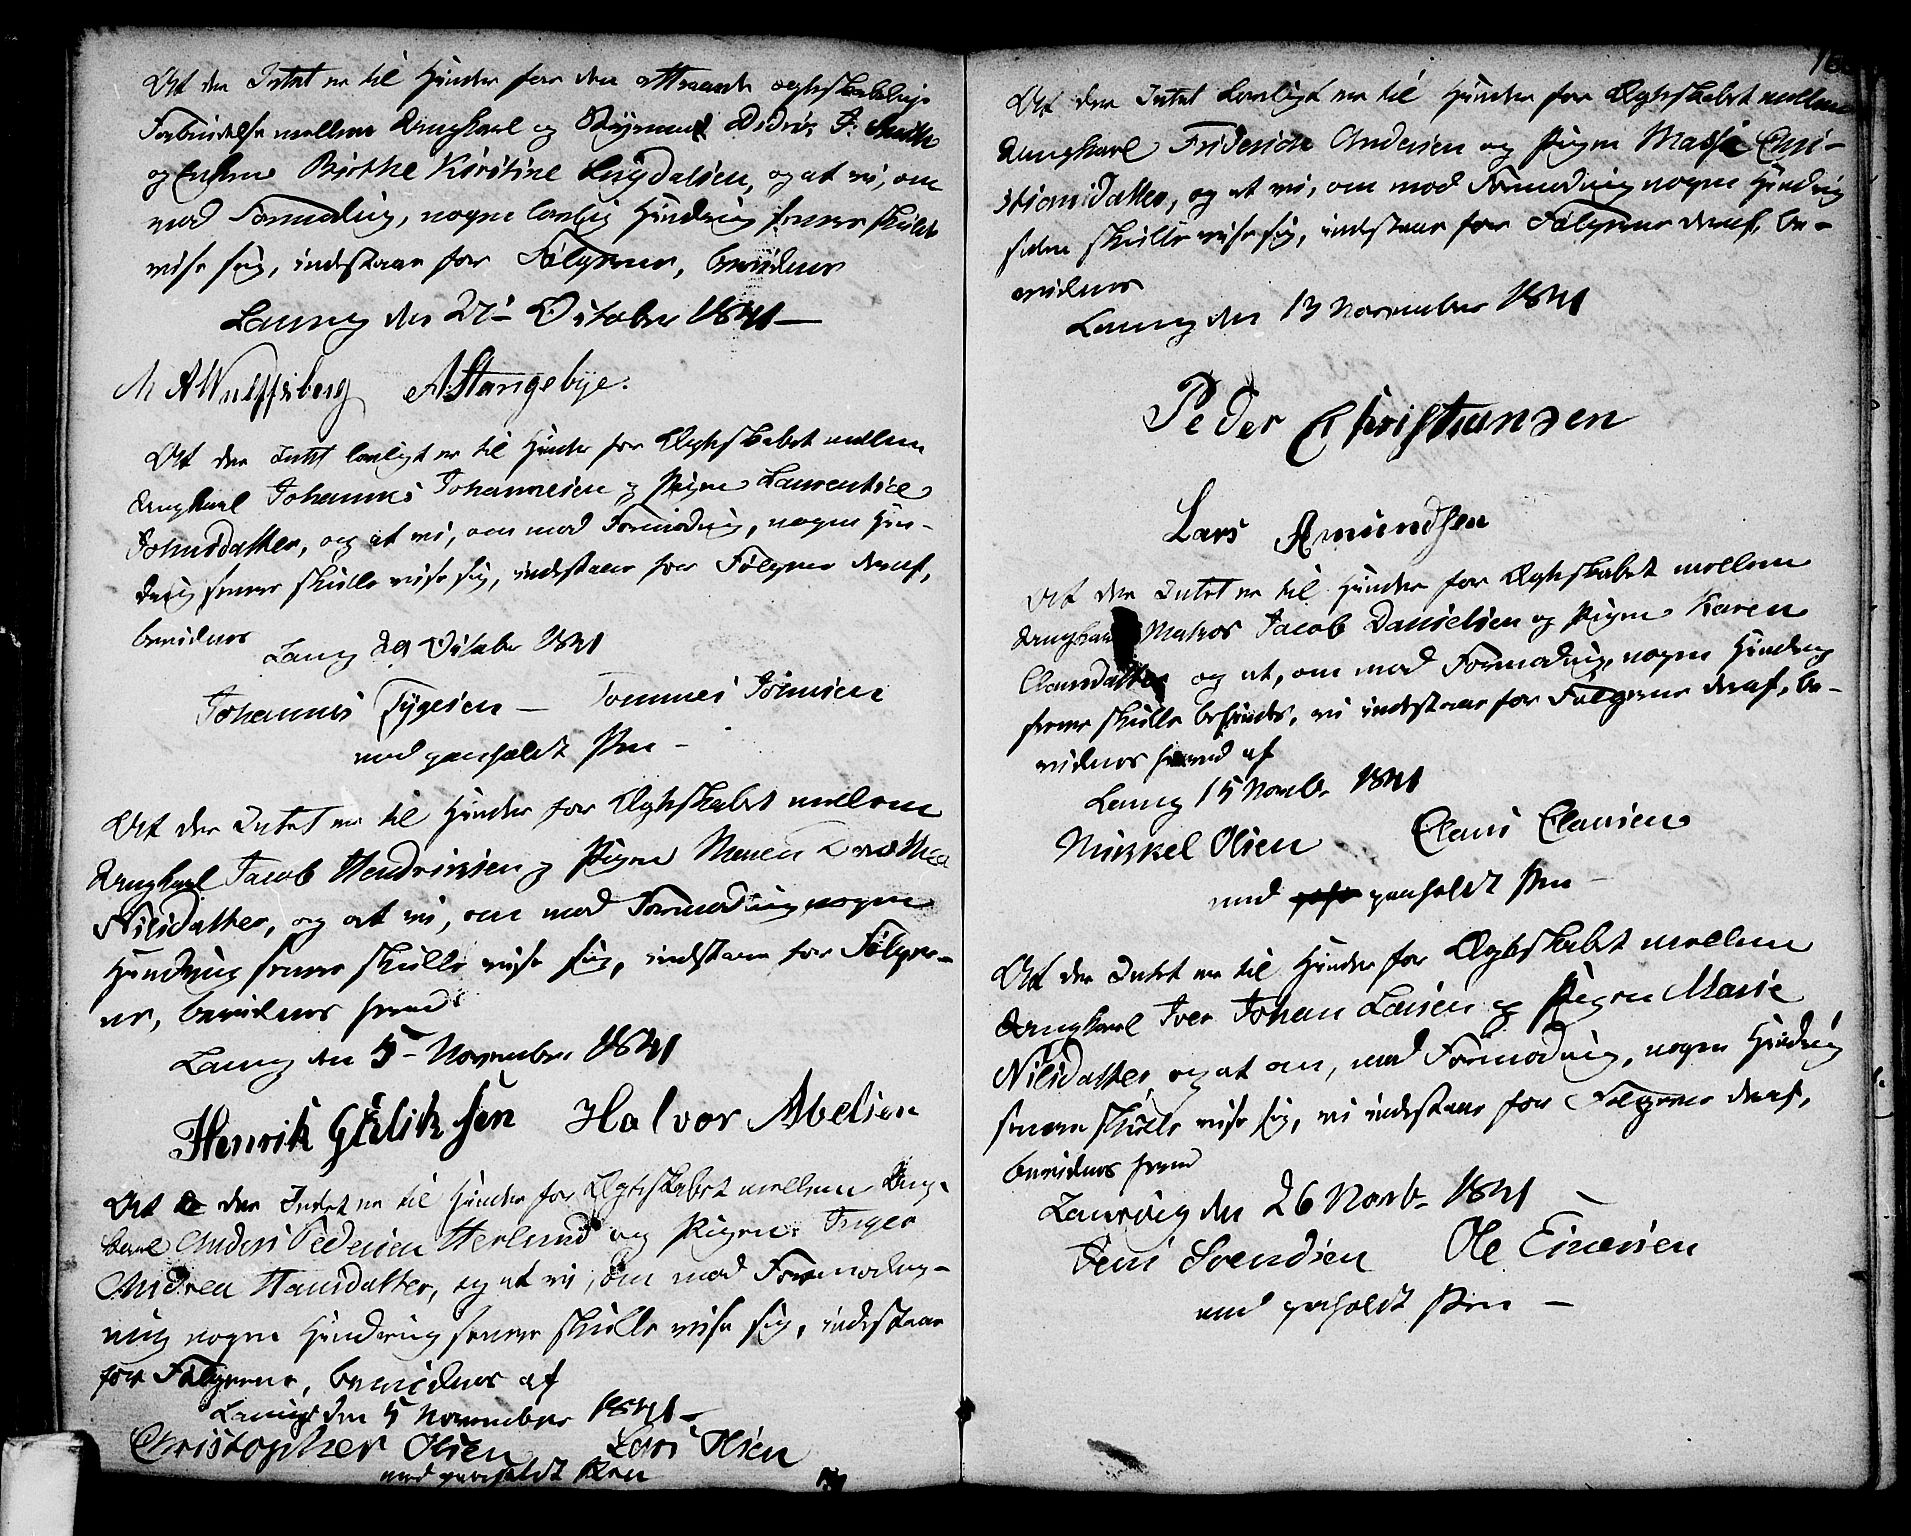 At der Intet er til Hinder for den attraaede ægteskabelige
Forbindelse mellem Ungkarl og Styrmand Didrik J. Smith
og Enken Birthe Kirstine Lugdalsen, og at vi, om
mod Formodning, nogen lovlig Hindring senere skulde
vise sig, indestaae for Følgerne, bevidnes
Laurvig den 27- October 1841-
M A Wulffsberg A Stangebye.
At der Intet lovligt er til Hinder for Ægteskabet mellem
Ungkarl Johannes Johannesen og Pigen Laurentice
Johnsdatter, og at vi, om mod Formodning, nogen Hin-
dring senere skulle vise sig, indestaae for Følgerne deraf,
bevidnes
Laurvig 29 October 1841
Johannes Tygesen - Tommes Johnsen
med paaholdt Pen -
At der Intet er til Hinder for Ægteskabet mellem
Ungkarl Jacob Hendriksen og Pigen Maren Dorothea
Nilsdatter, og at vi, om mod Formodning nogen
Hindring senere skulle vise sig, indestaae for Følger-
ne, bevidnes herved
Laurvig den 5- November 1841
Henrik Gulliksen Halvor Abelsen
At der Intet er til Hinder for Ægteskabet mellem Ung-
karl Anders Pedersen Herlund og Pigen Inger
Andrea Hansdatter, og at vi, om mod Formod-
ning nogen Hindring senere skulle vise sig, indestaae
for Følgerne, bevidnes af
Laurvig den 5 November 1841-
Christopher Olsen Lars Olsen
med paaholdt Pen
At der Intet Lovligt er til Hinder for Ægteskabet mellem
Ungkarl Friderich Andersen og Pigen Chri-
stiansdatter, og at vi, om mod Formodning nogen Hindring
siden skulle vise sig, indestaae for Følgerne deraf, be-
vidnes
Laurvig den 13 November 1841
Peder Christiansen
Lars Amundsen
At der Intet er til Hinder for Ægteskabet mellem
Ungkarl Matros Jacob Danielsen og Pigen Karen
Clausdatter og at, om mod Formodning, nogen Hindring
senere skulle befindes, vi indestaae for Følgerne deraf, be-
vidnes herved af
Laurvig 15 Novbr 1841
Mikkel Olsen Claus Clausen
med paaholdt Pen -
At der Intet er til Hinder for Ægteskabet mellem
Ungkarl Iver Johan Larsen og Pigen Marie
Nilsdatter og at om, mod Formodning, nogen Hindring
senere skulle vise sig, vi indestaae for Følgerne deraf,
bevidnes herved
Laurvig den 26 Novb- 1841
Jens Svendsen Ole Einersen
med paaholdt Pen -